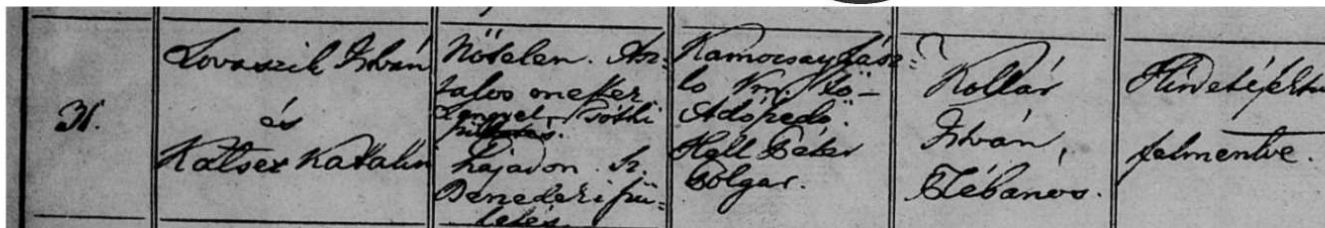 31.
Lovaszik István
és
Katser Katalin
Nőtelen. Asz-
talos mester
Lengyel Tóthi
hajadon. Sz.
Benedeki szü-
letés.
Kamocsay Lász-
ló Vm. fő-
Adószedő.
Hell Péter
Polgár.
Kollár
István,
Plébános.
felmentve.